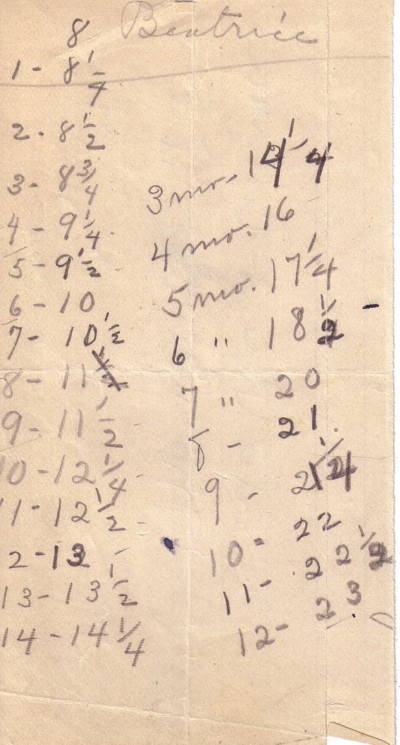 8 Beatrice
1 - 8 1/4
2 - 8 1/2
3 - 8 3/4
4 - 9 1/4
5 - 9 1/2
6 - 10
7 - 10 1/2
8 - 11
9 - 11 1/2
10 - 12 1/4
11 - 12 1/2
2 - 13
13 - 13 1/2
14 - 14 1/4
3 mo. - 14 1/4
4 mo. 16
5 mo. 17 1/4
6 " 18 1/2
7 " 20
8 - 21
9 - 21 1/4
10 - 22
11 - 22 1/2
12 - 23